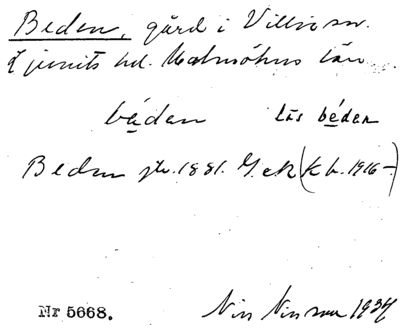 Beden, gård i Villie sn.
Ljunits hd. Malmöhus län
bédan läs béden
Beden jb. 1881. G. ek (k b. 1916-)
Nr 5668. Nils Nilsson 1934